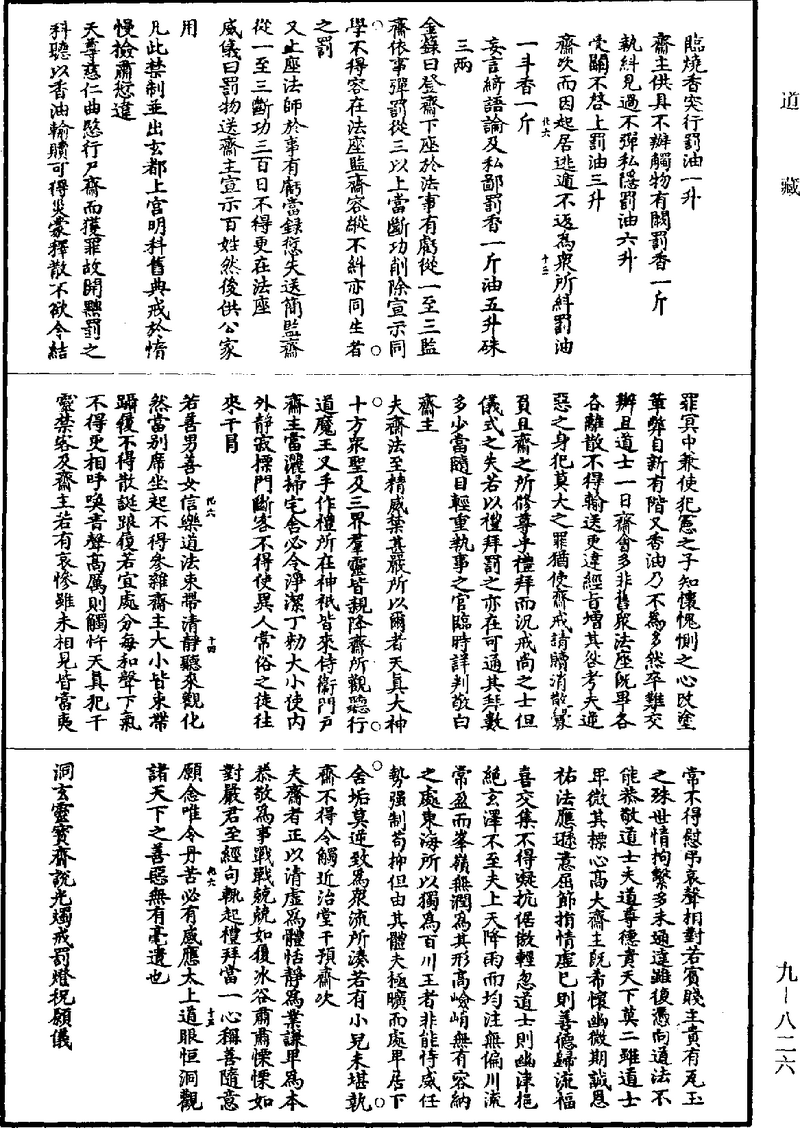 道藏
臨燒香突行罰油一升
齋主供具不辦觸物有闕罰香一斤
執糾見過不彈私隱罰油六升
受關不啓上罰油三升
齋次而因起居逃遁不返為眾所糾罰油
一斗香一斤
妄言綺語論及私鄙罰香一斤油五升硃
三兩
金籙曰登齋下座於法事有虧從一至三監
齋依事彈罰從三以上當斷功削除宣示同
學不得容在法座監齋容縱不糾亦同生者
之罰
又止座法師於事有虧當録愆失送簡監齋
從一至三斷功三百日不得更在法座
威儀曰罰物送齋主宣示百姓然後供公家
用
凡此禁制並出玄都上宮明科舊典戒於惰
慢撿肅愆違
天尊慈仁曲愍行尸齋而獲罪故開黜罰之
科聽以香油輸贖可得災蒙釋散不欲令結
罪冥中兼使犯憲之子知懷愧惻之心改塗
革弊自新有階又香油乃不為多然卒難交
辦且道士一日齋會多非舊眾法座既畢各
各離散不得輸送更違經旨增其咎考夫逆
惡之身犯莫大之罪猶使齋戒請贖消散釁
負且齋之所修尊乎禮拜而況戒尚之士但
儀式之失若以禮拜罰之亦在可通其拜數
多少當隨目輕重執事之官臨時詳判敬白
齋主
夫齋法至精威禁甚嚴所以爾者天真大神
十方眾聖及三界羣靈皆親降齋所觀聽行
道魔王叉手作禮所在神祇皆來侍衛門戶
齋主當灑掃宅舍必令淨潔丁勑大小使內
外靜寂標門斷客不得使異人常俗之徒往
來干冒
若善男善女信樂道法束帶清靜聽來觀化
然當別席坐起不得參雜齋主大小皆束帶
躡履不得散誕踉傁若宜處分每和聲下氣
不得更相呼喚音聲高厲則觸忤天真犯干
靈禁客及齋主若有哀慘雖未相見皆當夷
常不得慰弔哀聲相對若賓賤主貴有瓦玉
之殊世情拘繫多未通達雖復憑向道法不
能恭敬道士夫道尊德貴天下莫二雖道士
卑微其標心高大齋主既希懷幽微期誠恩
祐法應遜意屈節指情虛已則善德歸流福
喜交集不得礙抗倨傲輕忽道士則幽津挹
絕玄澤不至夫上天降雨而均注無偏川流
常盈而峯嶺無潤為其形高嶮峭無有容納
之處東海所以獨為百川王者非能恃威任
勢強制苟抑但由其體夫極曠而處卑居下
舍垢莫逆致為眾流所湊若有小兒未堪執
齋不得令觸近治堂干預齋次
夫齋者正以清虛為體恬靜為業謙卑為本
恭敬為事戰戰兢兢如履冰谷肅肅慄慄如
對嚴君至經句輒起禮拜當一心稱善隨意
願念唯令丹苦必有感應太上道眼恒洞觀
諸天下之善惡無有毫遺也
洞玄靈寶齋說光燭戒罰燈祝願儀
九-八二六